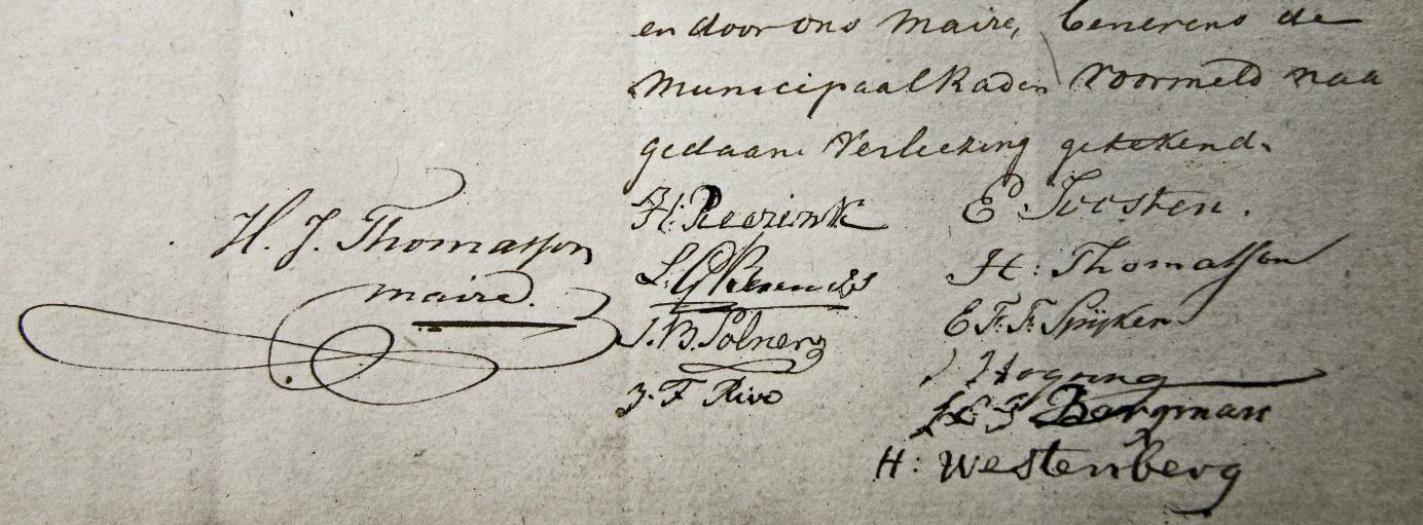 en door ons Maire, benevens de
Municipaal Raden voormeld naa
gedaane Verleezing getekend.
H. J. Thomasson
maire.
H: Reerink
L. G.
J. B. Polnerg
J. F Rivo
E Joosten.
H: Thomasson
E F. F. Spijker
J Hogung
Bargman
H: Westenberg